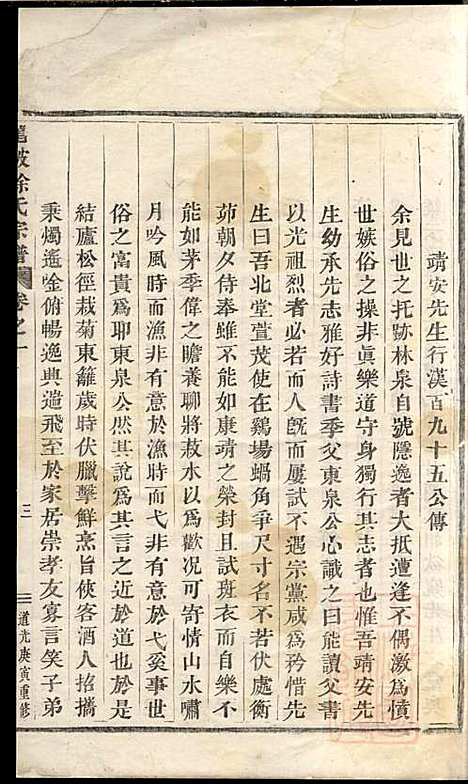 靖安先生行漢百九十五公傳
余見世之托跡林泉自號隱逸者大抵遭逢不偶激爲憤
世嫉俗之操非眞樂道守身獨行其志者也惟吾靖安先
生幼承先志雅好詩書季父東泉公心識之曰能讀父書
以光祖烈者必此人旣而屢試不遇宗黨咸爲矜惜先
生曰吾北堂萱茂使在鷄場蝸角爭尺寸名不若伏處衡
茆朝夕侍奉雖不能如康靖之榮封且試斑衣而自樂不
能如茅季偉之贍養聊將菽水以爲歡可寄情山水嘯
月吟風時而漁非有意於漁時而弋非有意於弋奚事世
俗之富貴爲耶東泉公然其說爲其言之近於道也於是
結廬松徑栽菊東籬歲時伏臘擊鮮烹旨俠客酒人招攜
乘燭遙唫俯暢逸興遄飛至於家居崇孝友寡言笑子弟
徐氏宗譜
卷之一
三
道光庚寅重修